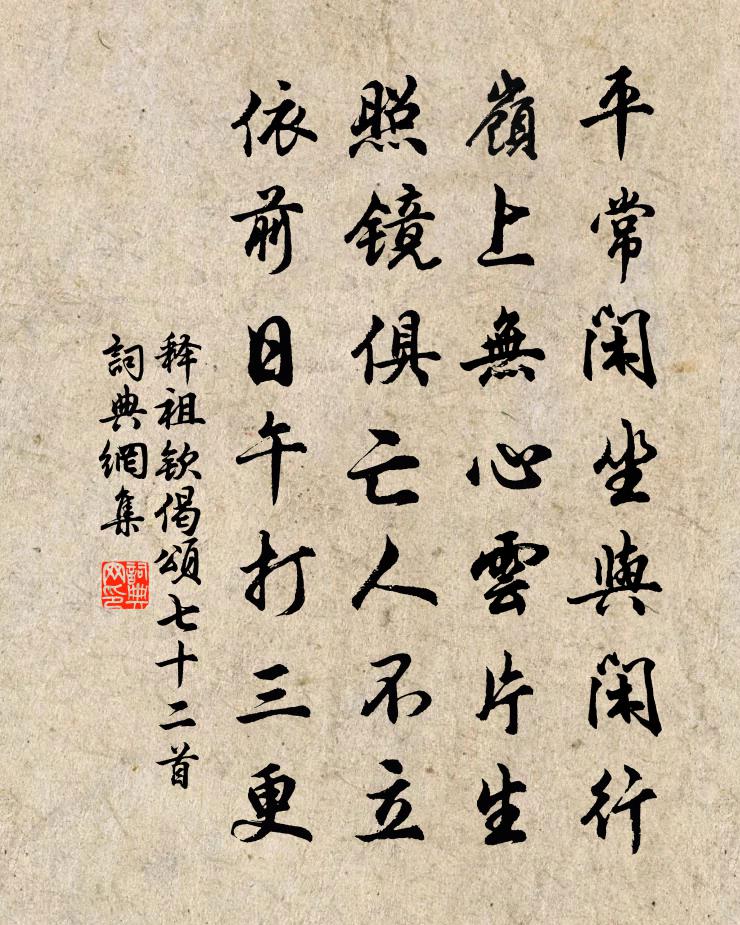 平常閑坐與閑行
嶺上無心雲片生
照镜俱亡人不立
依前日午打三更
释祖钦偈頌七十二首
詞典網集
詞典网印